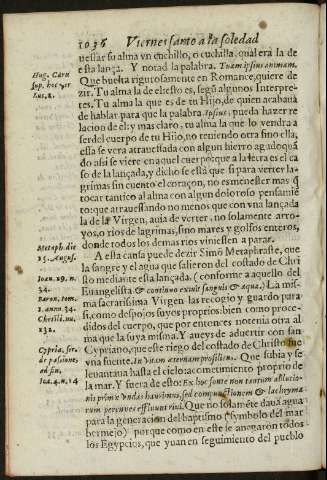 1036 Viernes santo a la soledad
uessar su alma vn cuchillo, o cuchilla, qual era la de
esta lança. Y notad la palabra. Tuam ipsius animam.
Que buelta rigurosamente en Romance, quiere de
zir. Tu alma la de este es, segũ algunos Interpre-
tes. Tu alma la que es de tu Hijo, de quien acabaua
de hablar para que la palabra, Ipsius, pueda hazer re
lacion de el: y mas claro, tu alma la que lo vendra a
ser del cuerpo de tu Hijo, no teniendo otra sino ella,
essa se vera atrauessada con algun hierro agudo quã
do assi se viere en aquel cuerpo: que a la letra es el ca
so de la lançada, y dicho se està que si para verter la-
grimas sin cuento el coraçon, no es menester mas q̃
tocar tantico al alma con algun doloroso pensamiẽ
to: que atrauessando no menos que con vna lançada
la de la Virgen, auia de verter, no solamente arro-
yos, o rios de lagrimas, sino mares y golfos enteros,
donde todos los demas rios viniessen a parar.
A esta causa puede dezir Simõ Metaphraste, que
la sangre y el agua que salieron del costado de Chri
sto mediante esta lançada. (conforme a aquello del
Euangelista & continuo exiuit sanguis & aqua.) La mis-
ma sacratissima Virgen las recogio y guardo para
si, como despojos suyos proprios: bien como proce
didos del cuerpo, que por entonces no tenia otra al
ma que la suya misma. Y aueys de aduertir con san
Cypriano, que este riego del costado de Christo fue
vna fuente, In vitam æternam prosiliens. Que subia y se
leuantaua hasta el cielo: acometimiento proprio de
la mar. Y fuera de esto: Ex hoc fonte non tantum ablutio-
nis primæ vndas haurimus, sed compunctionem & lachryma
rum perennes effluunt riui. Que no solamẽte daua agua
para la generacion del baptismo (symbolo del mar
bermejo) porque como en este se anegaron todos
los Egypcios, que yuan en seguimiento del pueblo
Hug. Card
sup. hoc ver
Luc. 2.
Metaph. die
15. Augus.
Ioan. 19. n.
34.
Baron. tom.
1. ann. 34.
Christi. nu.
132.
Cypria. ser.
de passione,
ad fin.
Ioa. 4. n. 14